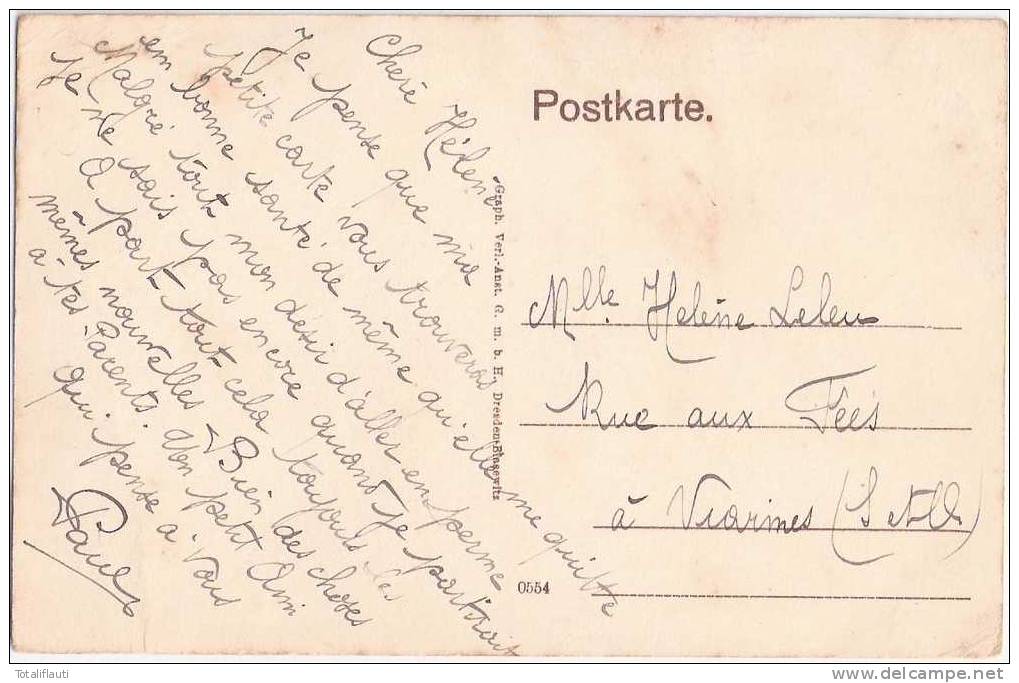 Cheré Hélène
Je pense que ma
petite carte vous trouveras
em bonne santé de même qu'elle me quitte
Malgré tout mon désir d'aller en perme
Je ne sais pas encore quand je partirait
A part tout cela toujours les
mêmes nouvelles Bien des choses
à tes Parents don petit Ami
qui pense a Vous
Paul
"Graph. Verl.-Anst. G. m. b. H., Dresden-Blasewitz
Postkarte.
Mlle Heléne Leleu
Rue aux Fées
à Viarmes (S et O)
0554
Totaliflauti
www.delcampe.net